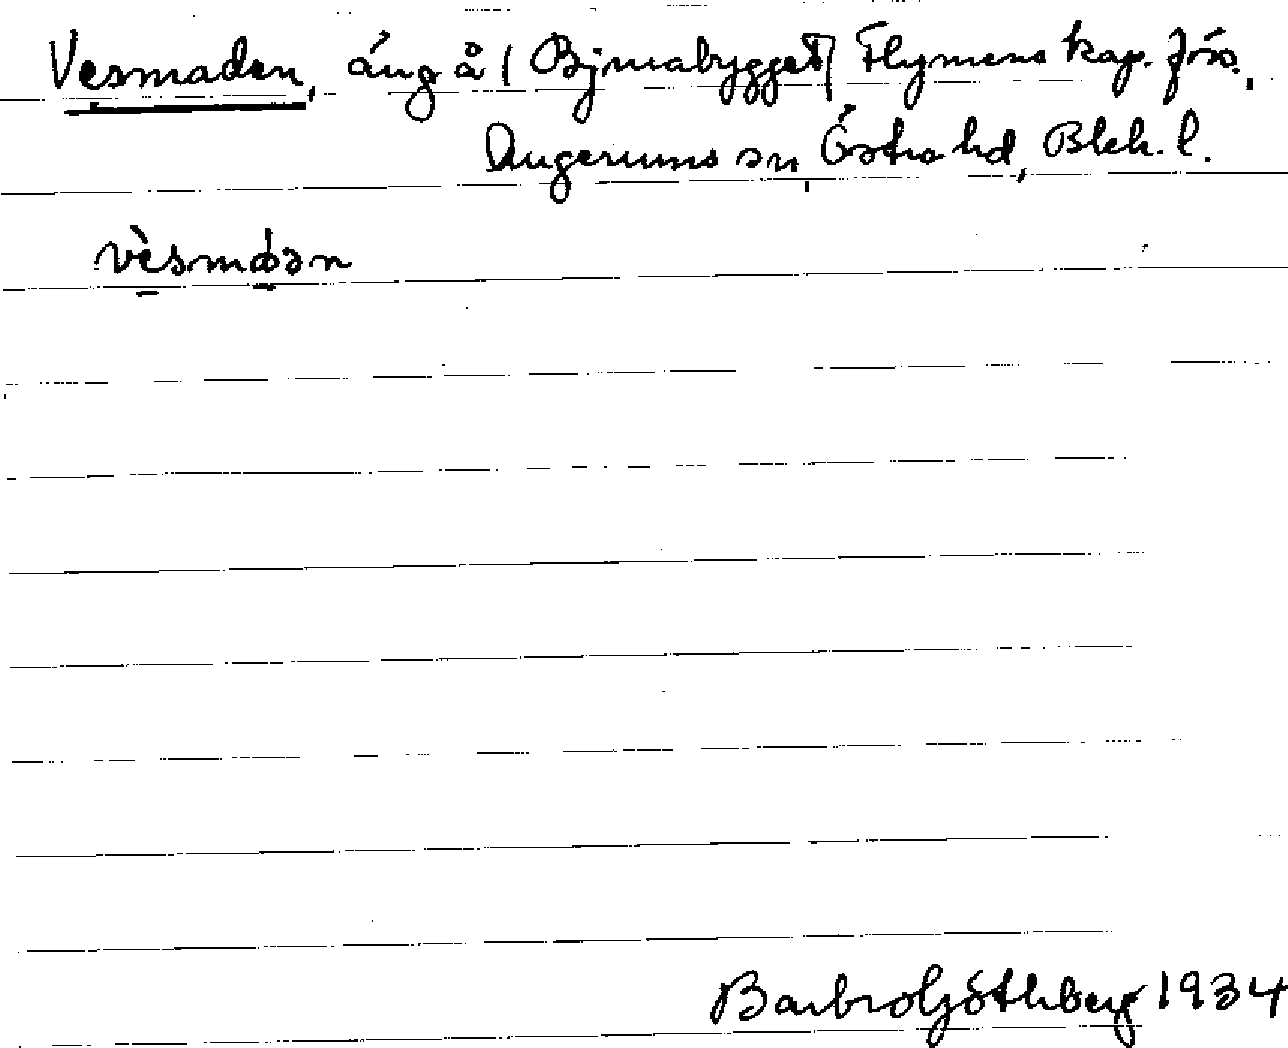 Vesmaden, äng å (Björnabygget) Flymens kap. förs.,
Augerums sn, Östra hd, Blek. l.
vèsmòən
Barbro Göthberg 1934